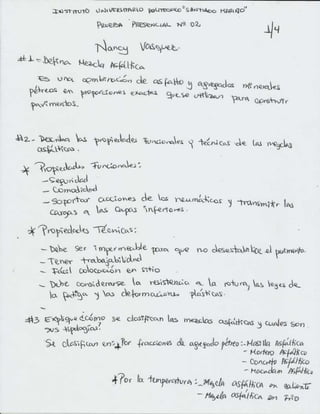 INSTITUTO UNIVERSITARIO POLITECNICO "SANTIAGO MARIÑO"
PRUEBA PRESENCIAL Nº 02
1/4
Nancy Vásquez
#1 = Defina Mezcla Asfáltica
Es una combinación de asfalto y agregados minerales
pétreos en proporciones exactas que se utilizan para construir
pavimentos.
#2 - Describa las propiedades Funcionales y técnicas de las mezclas
asfálticas.
* Propiedades Funcionales:
- Seguridad
- Comodidad
- Soportar acciones de los neumáticos y transmitir las
cargas a las capas inferiores.
* Propiedades Técnicas:
- Debe ser impermeable para que no desestabilice el pavimento.
- Tener trabajabilidad
- Fácil colocación en sitio
- Debe considerarse la resistencia a la rotura, las leyes de
la fatiga y las deformaciones plásticas.
#3 Explique ¿cómo se clasifican las mezclas asfálticas y cuáles son
sus tipologías?
Se clasifican en: * Por fracciones de agregado pétreo: - Masilla Asfáltica
- Mortero Asfáltico
- Concreto Asfáltico
- Macadam Asfáltico
* Por la temperatura: - Mezcla asfáltica en caliente
- Mezcla asfáltica en frío